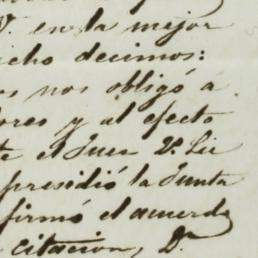 V. en la mejor
icho decimos:
os nos obligó á
ores y al efecto
te el Juez 2º Lic
presidió la Junta
firmó el acuerdo
citacion, Dn